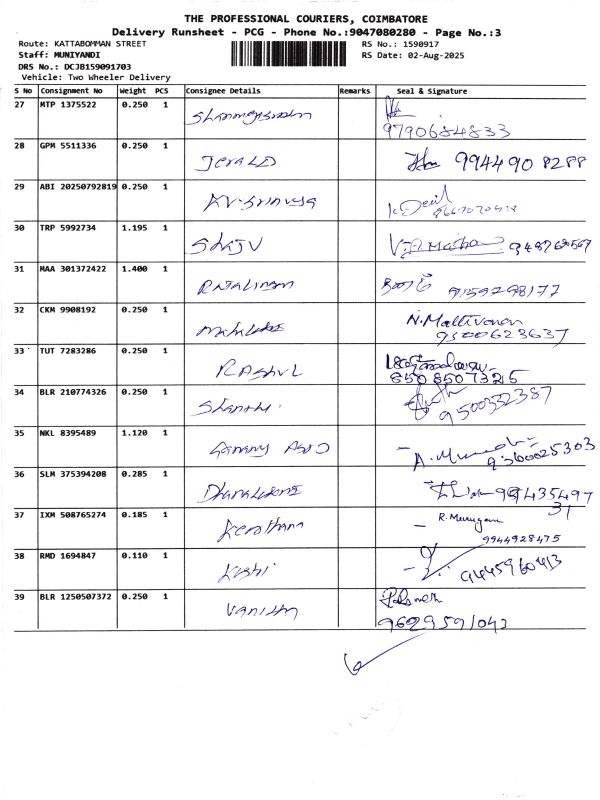 THE PROFESSIONAL COURIERS, COIMBATORE
Delivery Runsheet - PCG - Phone No.:9047080280 - Page No.:3
Route: KATTABOMMAN STREET
Staff: MUNIYANDI
DRS No.: DCJB159091703
Vehicle: Two Wheeler Delivery
RS No.: 1590917
RS Date: 02-Aug-2025
S No Consignment No Weight PCS Consignee Details Remarks Seal & Signature
27 MTP 1375522 0.250 1
9790684833
28 GPM 5511336 0.250 1 Jerald 9944908288
29 ABI 20250792819 0.250 1
30 TRP 5992734 1.195 1 Shaju
31 MAA 301372422 1.400 1 Rajalingam 9159298177
32 CKM 9908192 0.250 1 N. Mathivanan
9500623637
33 TUT 7283286 0.250 1 Rahul
8508507325
34 BLR 210774326 0.250 1 Shanthi 9500332387
35 NKL 8395489 1.120 1 9360025303
36 SLM 375394208 0.285 1
37 IXM 508765274 0.185 1 Keerthana R. Murugan
9944928475
38 RMD 1694847 0.110 1 9445960413
39 BLR 1250507372 0.250 1
9629591043